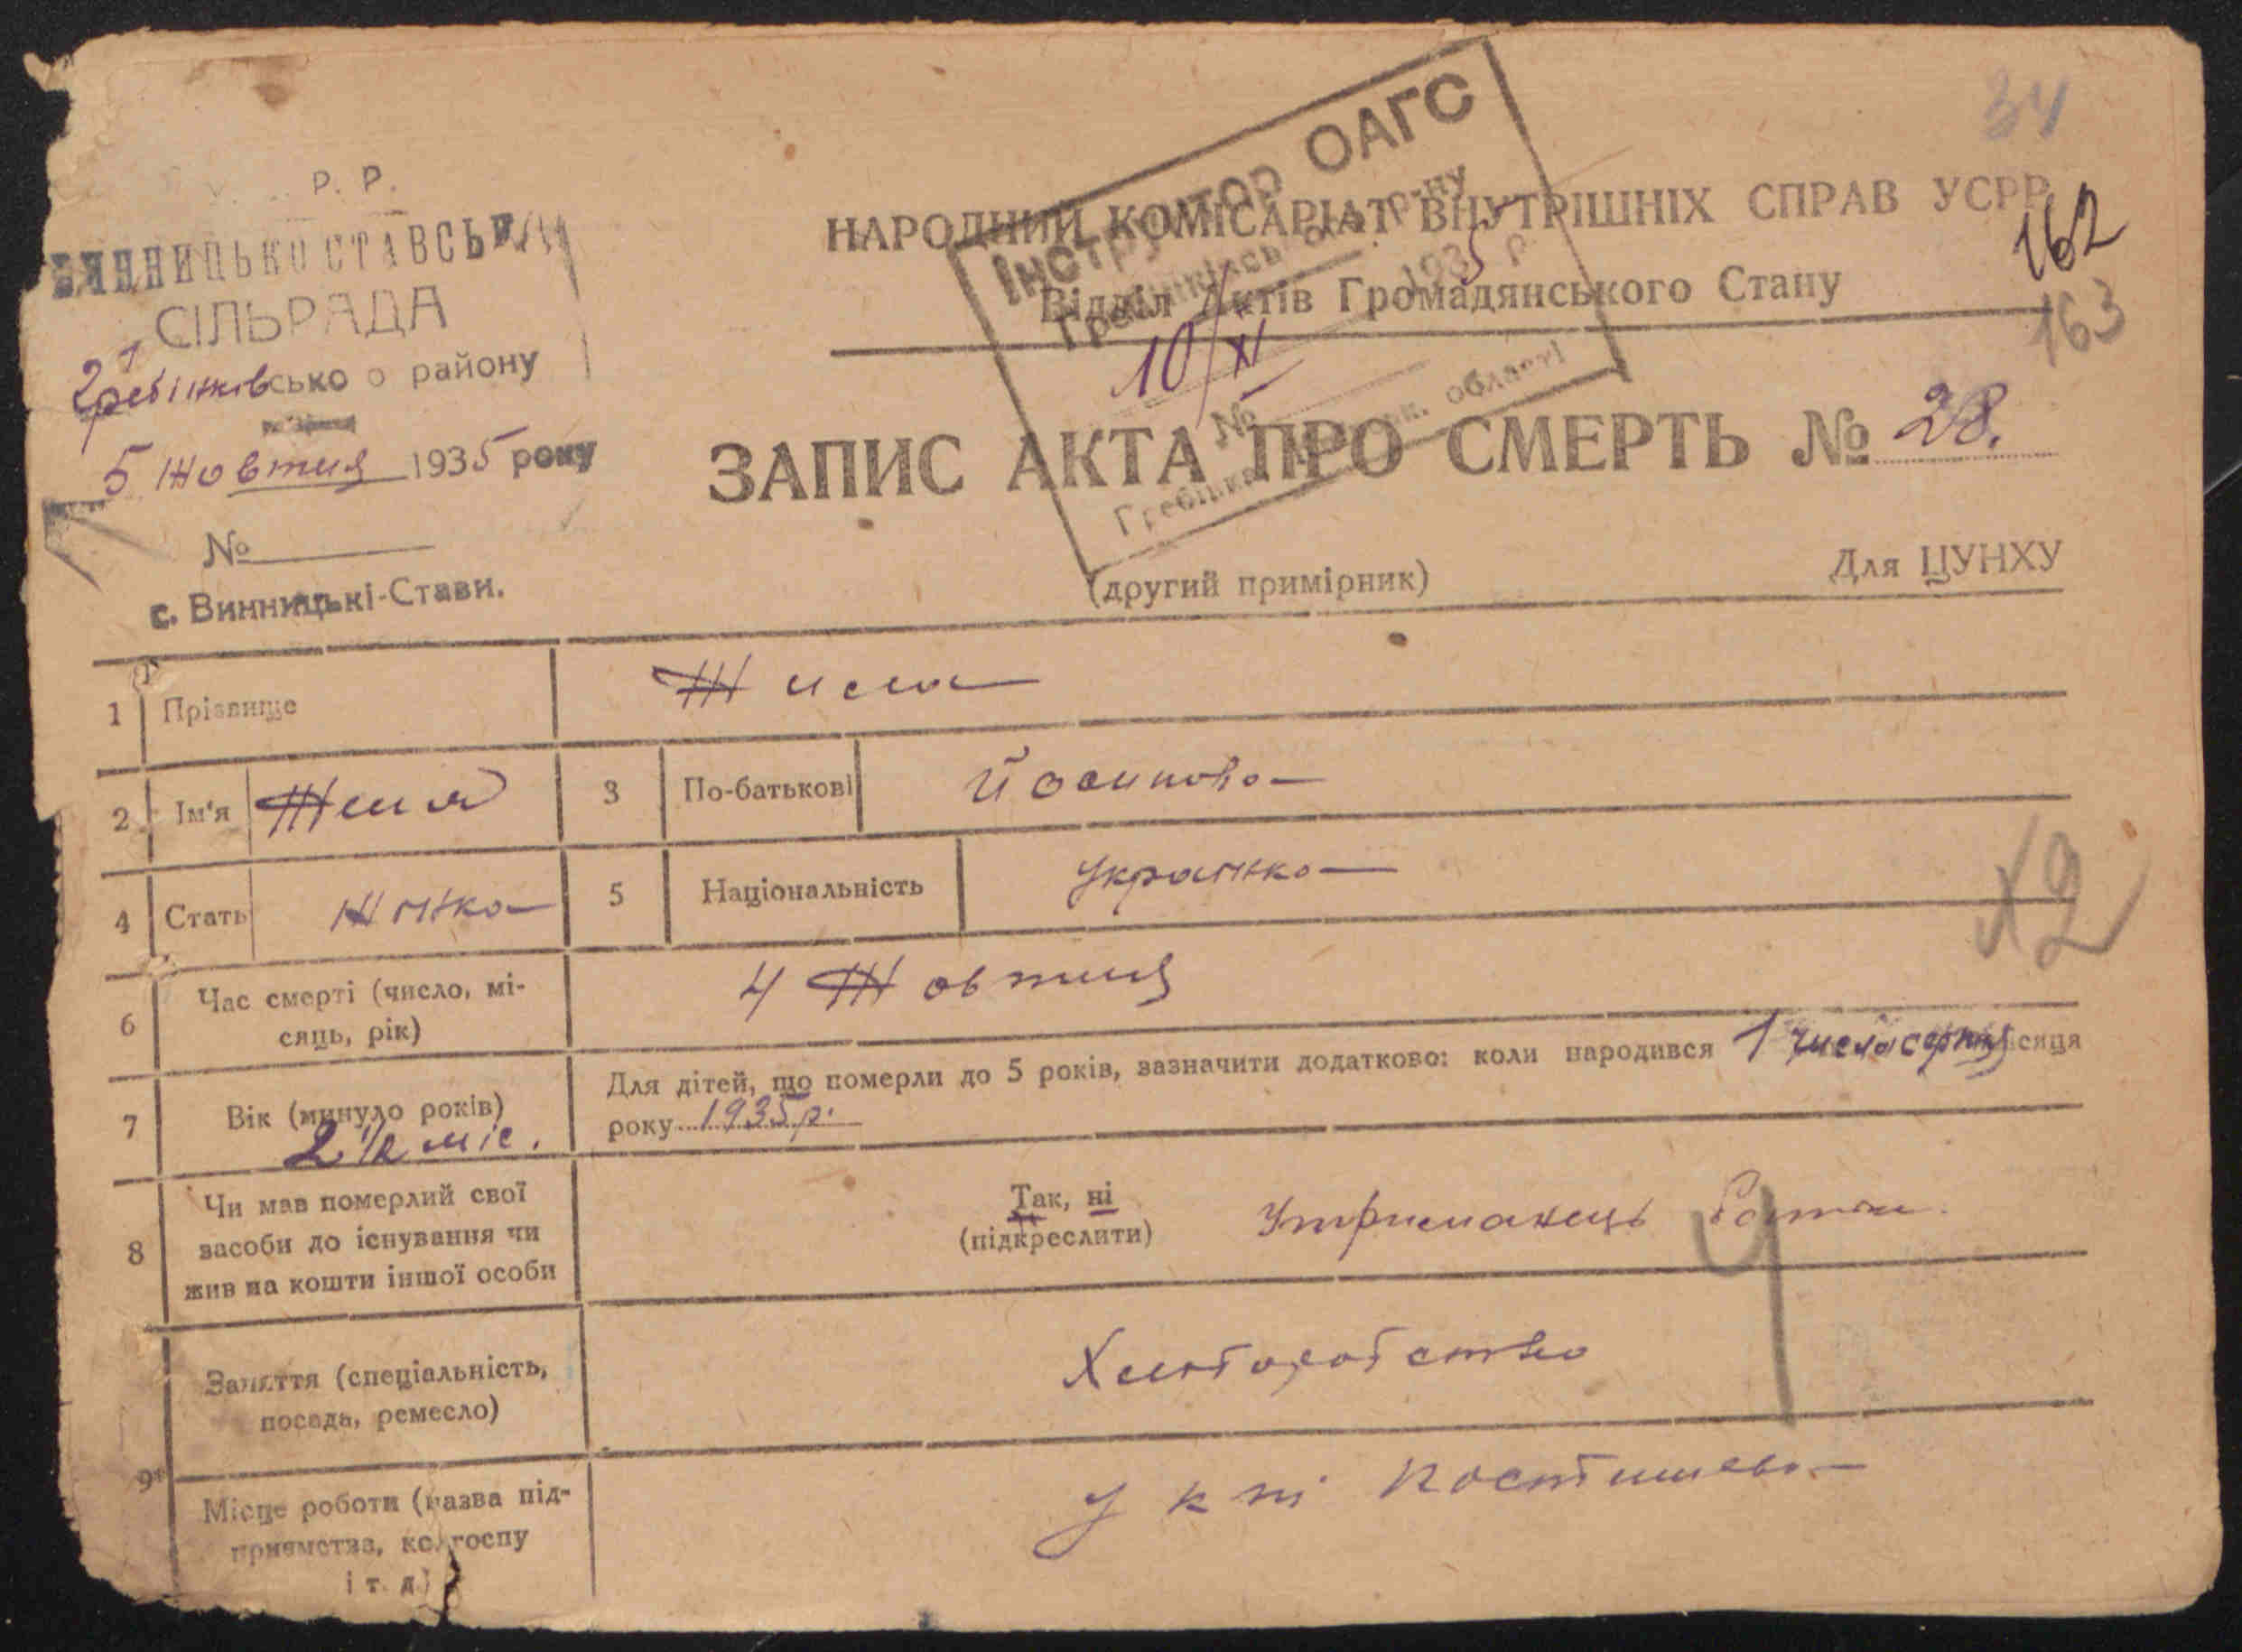 34
Р. Р.
ВИННИЦЬКОСТАВСЬКА
СІЛЬРАДА
Гребінківсько о району
5 Жовтня 1935 року
№
с. Винницькі-Стави.
Інструктор ОАГС
Гребінківського р-ну
10/XI 1935 р.
№
області
НАРОДНИЙ КОМІСАРІАТ ВНУТРІШНІХ СПРАВ УСРР
162
Відділ Актів Громадянського Стану
163
ЗАПИС АКТА ПРО СМЕРТЬ № 28.
(другий примірник)
Для ЦУНХУ
1 Прізвище
2 Ім'я Женя 3 По-батькові Йосипова
4 Стать Жінка 5 Національність Українка
6 Час смерті (число, мі-
сяць, рік) 4 Жовтня
7 Вік (минуло років) 2 1/2 міс.
Для дітей, що померли до 5 років, зазначити додатково: коли народився 1 числа серпня місяця
року 1935 р.
8 Чи мав померлий свої
засоби до існування чи
жив на кошти іншої особи
Так, ні
(підкреслити)
Утриманець
9 Заняття (спеціальність,
посада, ремесло) Хліборобство
Місце роботи (назва під-
приємства, колгоспу
і т. д.) У к-пі Постишева